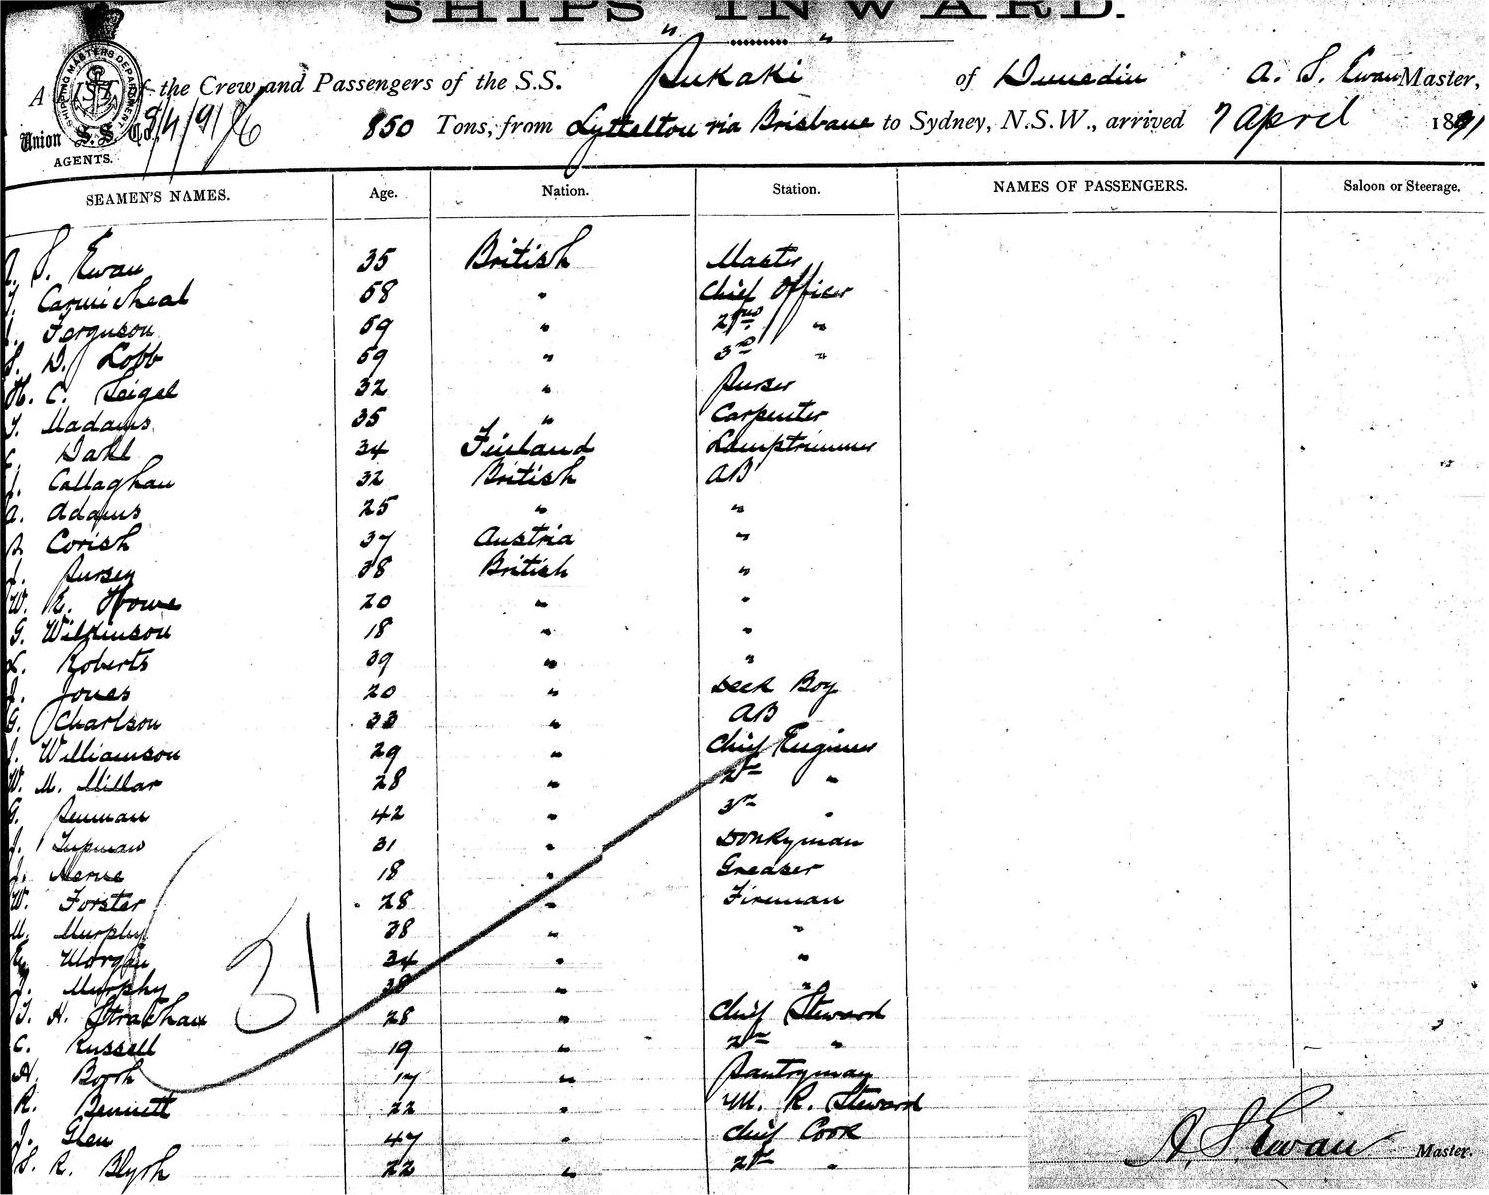 SHIPS INWARD.
SHIPPING MASTERS DEPARTMENT
A of the Crew and Passengers of the S.S. "Pukaki" of Dunedin A. S. Ewan Master,
Union S.S. Co. 9/4/91/6 850 Tons, from Lyttelton via Brisbane to Sydney, N.S.W., arrived 7 April 1891
AGENTS.
SEAMEN'S NAMES. Age. Nation. Station. NAMES OF PASSENGERS. Saloon or Steerage.
A. S. Ewan 35 British Master
T. Carmicheal 58 " Chief Officer
Ferguson 59 " 2nd "
S. D. Lobb 59 " 3rd "
H. C. Seigel 32 " Purser
T. Madams 35 " Carpenter
Dahl 34 Finland Lamptrimmer
J. Callaghan 32 British AB
A. Adams 25 " "
Corish 37 Austria "
J. Pursey 38 British "
W. E. Howe 20 " "
G. Wilkinson 18 " "
Roberts 39 " "
J. Jones 20 " Deck Boy
G. Charlson 33 " AB
J. Williamson 29 " Chief Engineer
W. M. Millar 28 " 2nd "
G. Penman 42 " 3rd "
J. Tupman 31 " Donkyman
J. 18 " Greaser
W. Forster 28 " Fireman
M. Murphy 38 " "
E. Morgan 34 " "
J. Murphy 38 " "
31
T. H. Strachan 28 " Chief Steward
C. Russell 19 " 2nd "
H. Booth 17 " Pantryman
R. Bennett 22 " M. R. Steward
J. Glen 47 " Chief Cook
S. R. Blyth 22 " 2nd "
A. S. Ewan Master.